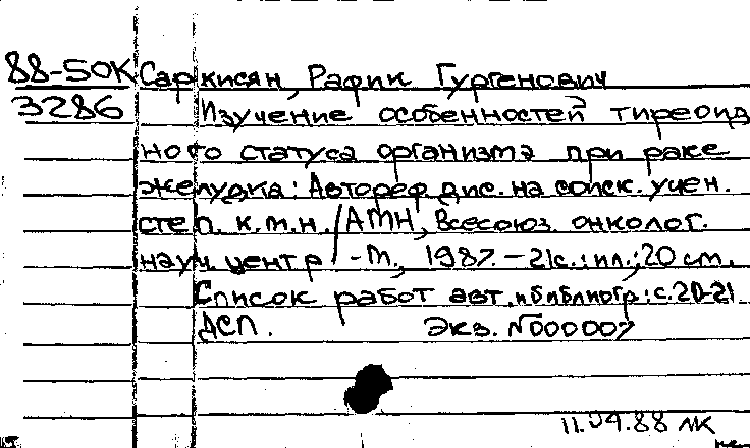 88-50К Саркисян, Рафик Гургенович
3286 Изучение особенностей тиреоид
ного статуса организма при раке
желудка: Автореф. дис. на соиск. учен.
степ. к.м.н. / АМН, Всесоюз. онколог.
науч. центр. - М., 1987. - 21с.: ил.; 20 см.
Список работ авт. и библиогр.: с. 20-21
ДСП. Экз. №000007
11.04.88 ЛК